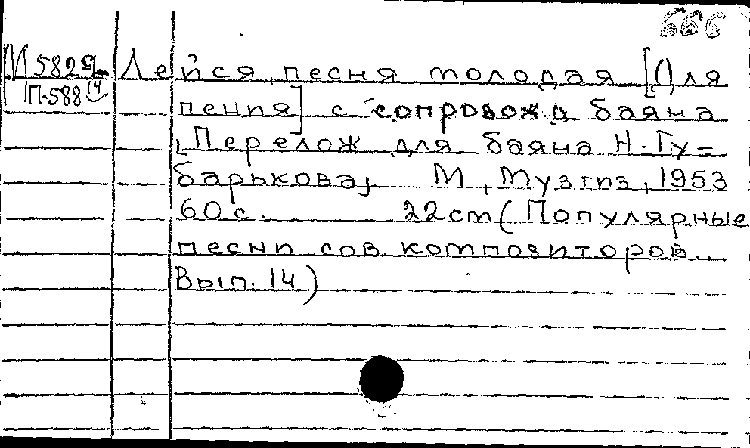 666
М 5829 Лейся, песня молодая [Для
П-588 14 пения] с сопровожд баяна
Перелож для баяна Н. Гу=
барькова, М, Музгиз, 1953
60 с. 22 cm (Популярные
песни сов. композиторов.
Вып. 14)